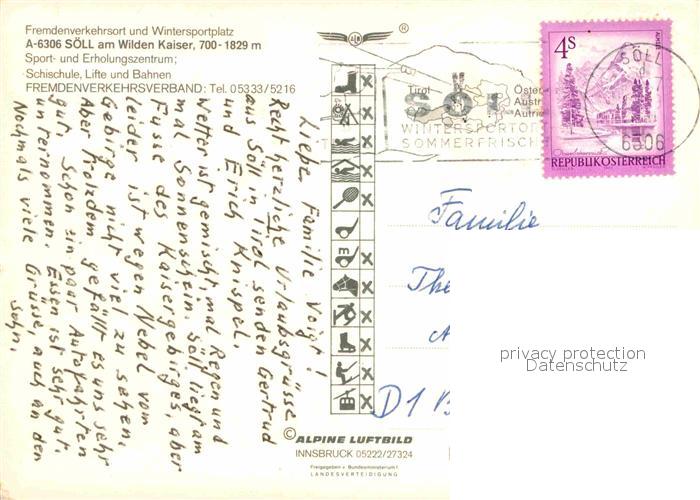 Fremdenverkehrsort und Wintersportplatz
A-6306 SÖLL am Wilden Kaiser, 700-1829 m
Sport- und Erholungszentrum;
Schischule, Lifte und Bahnen
FREMDENVERKEHRSVERBAND: Tel. 05333/5216
Liebe Familie Voigt!
Recht herzliche Urlaubsgrüsse
aus Söll in Tirol senden Gertrud
und Erich Knispel.
Wetter ist gemischt, mal Regen und
mal Sonnenschein. Söll liegt am
Fusse des Kaisergebirges, aber
leider ist wegen Nebel vom
Gebirge nicht viel zu sehen.
Aber trotzdem gefällt es uns sehr
gut. Schon ein paar Autofahrten
unternommen. Essen ist sehr gut.
Nochmals viele Grüsse, auch an den
Sohn.
®
Tirol
SÖLL
Öster
Austr
Autri
WINTERSPORTOR
SOMMERFRISCH
4S
ALMSEE
REPUBLIK ÖSTERREICH
SÖLL
6306
Familie
The
D1 B
privacy protection
Datenschutz
© ALPINE LUFTBILD
INNSBRUCK 05222/27324
Freigegeben v. Bundesministerium f.
LANDESVERTEIDIGUNG